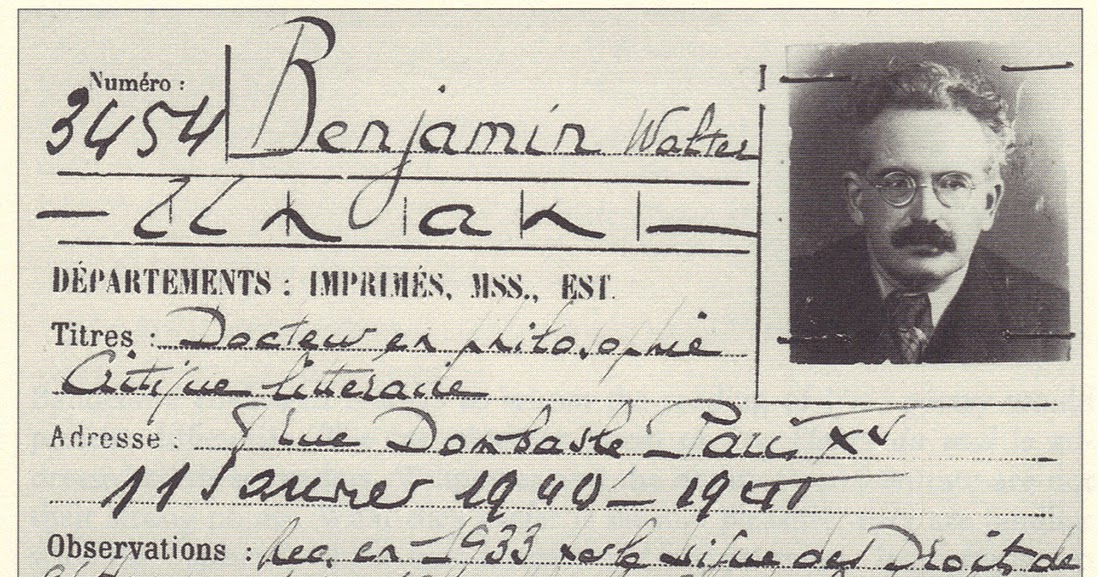 Numéro :
3454 Benjamin Walter
— Un | an | —
DÉPARTEMENTS : IMPRIMÉS, MSS., EST.
Titres : Docteur en philosophie
Critique littéraire
Adresse : rue Dombasle Paris XV
11 Janvier 1940 – 1941
Observations : Rec. en 1933 Ligue des Droits de